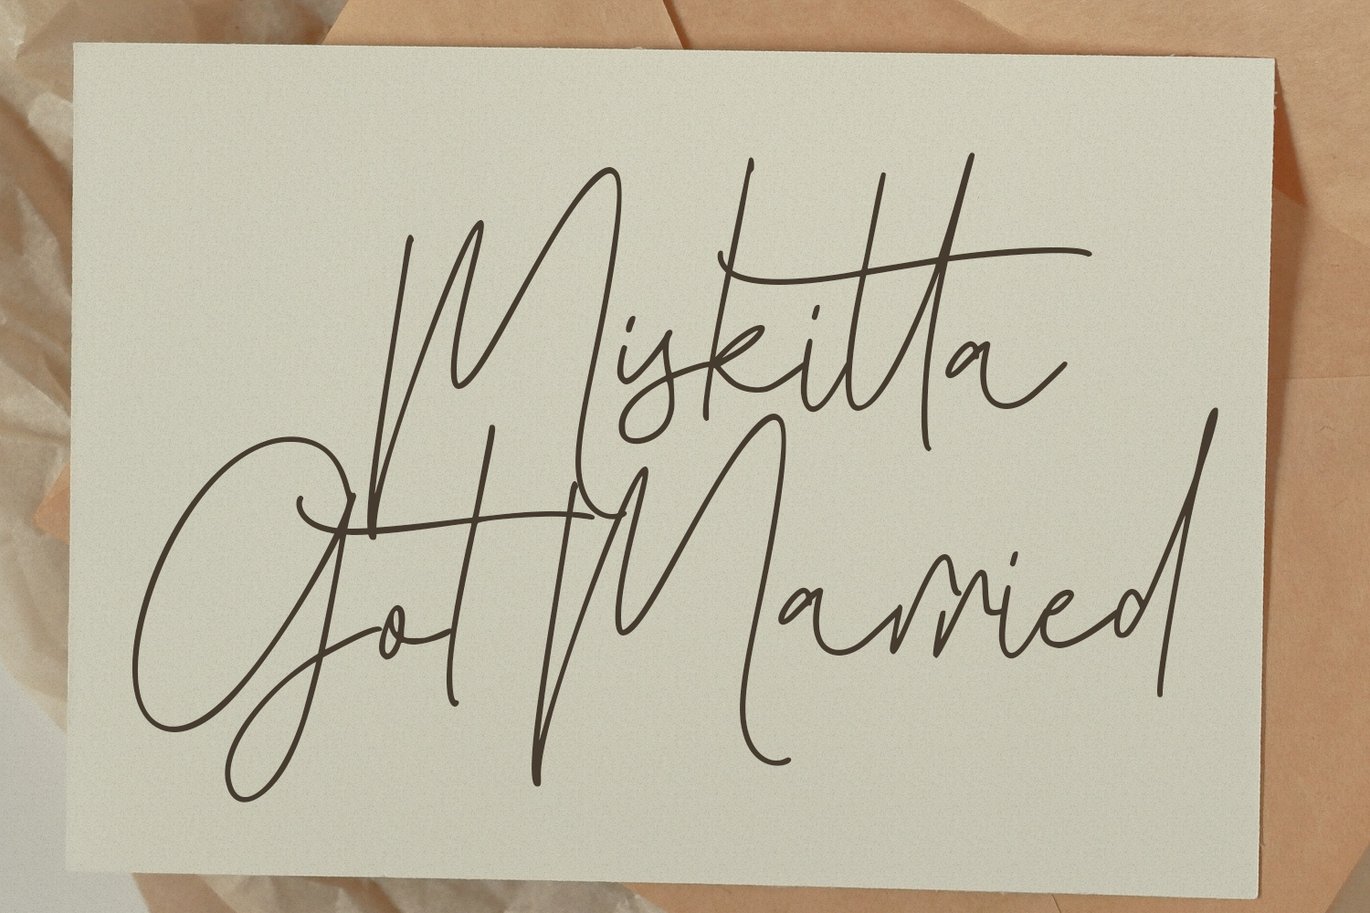 Miskitta
Got Married